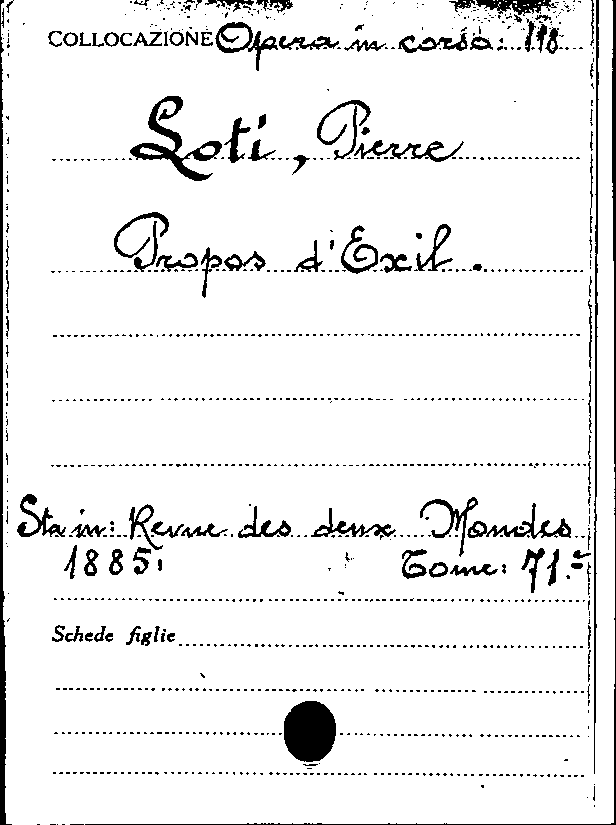 COLLOCAZIONE Opera in corso: 118
Loti, Pierre
Propos d'Exil.
Sta in: Revue des deux Mondes
1885. Tome: 71.=
Schede figlie